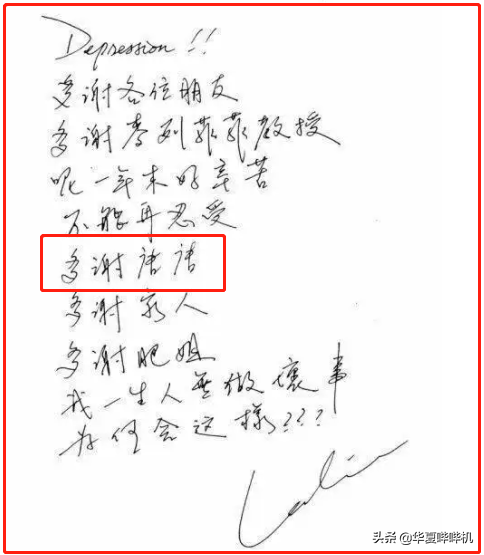 Depression!!
多谢各位朋友
多谢麥列菲菲教授
呢一年来好辛苦
不能再忍受
多谢唐唐
多谢家人
多谢肥姐
我一生人無做壞事
为何会这樣???
头条 @华夏哗哗机